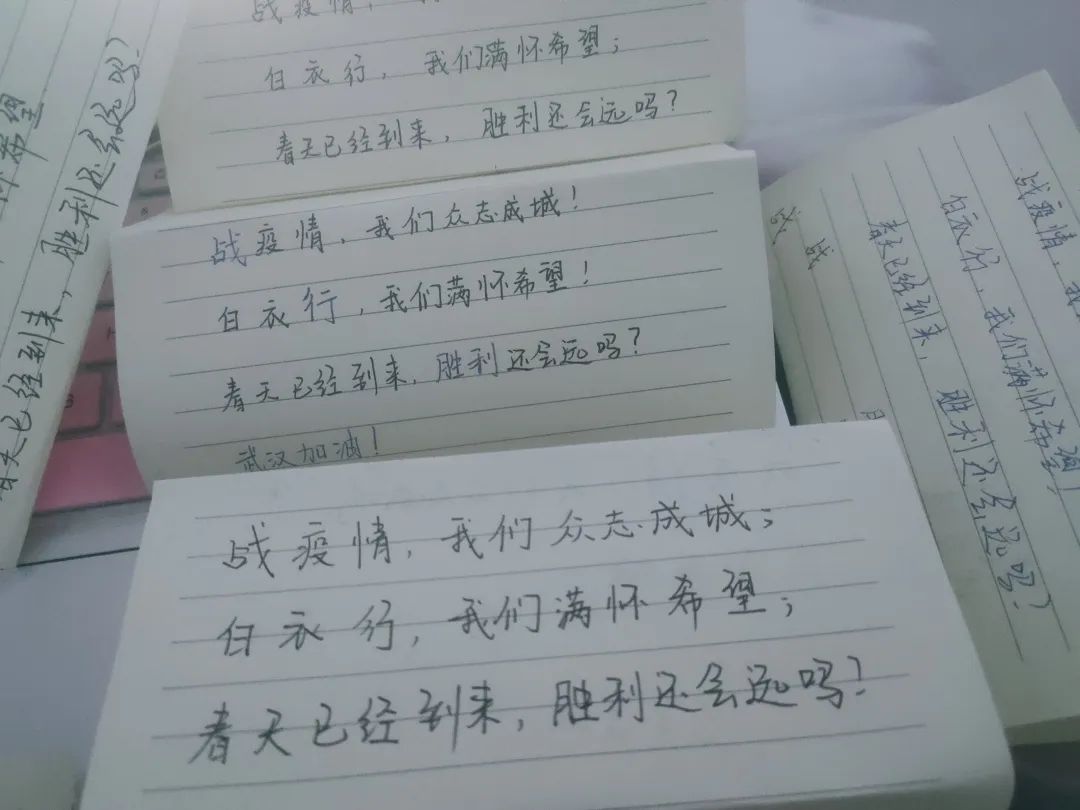 战疫情，我
白衣行，我们满怀希望；
春天已经到来，胜利还会远吗？
战疫情，我们众志成城！
白衣行，我们满怀希望！
春天已经到来，胜利还会远吗？
武汉加油！
战疫情，我们众志成城；
白衣行，我们满怀希望；
春天已经到来，胜利还会远吗？
怀希望
春天已经到来，胜利还会远吗？
战疫情，我
白衣行，我们满怀希望
春天已经到来，胜利还会远吗？
战